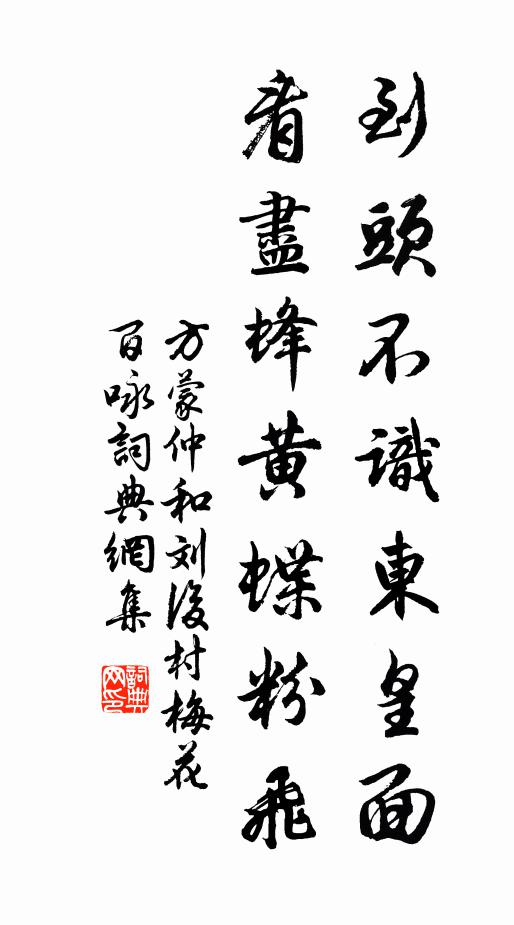 到頭不識東皇面
看盡蜂黄蝶粉飛
方蒙仲和刘後村梅花
百咏詞典網集
詞典网印